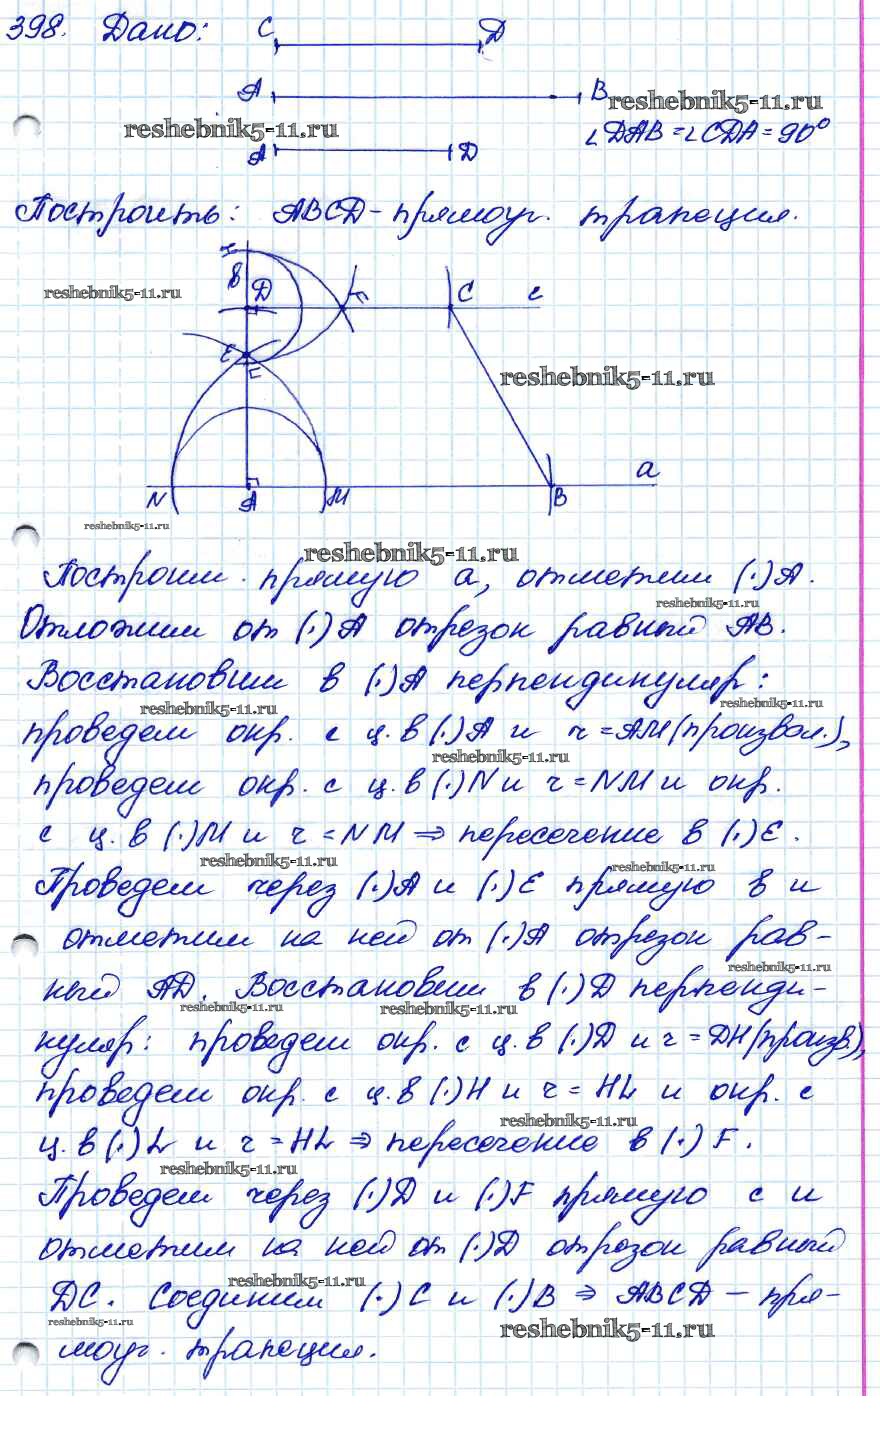 398. Дано: C D
A B reshebnik5-11.ru
reshebnik5-11.ru ∠DAB = ∠CDA = 90°
A D
Построить: ABCD - прямоуг. трапеция.
H
в
reshebnik5-11.ru D F C c
E
L reshebnik5-11.ru
a
N A M B
reshebnik5-11.ru
reshebnik5-11.ru
Построим прямую a, отметим (·)A.
reshebnik5-11.ru
Отложим от (·)A отрезок равный AB.
Восстановим в (·)A перпендикуляр:
reshebnik5-11.ru reshebnik5-11.ru
проведем окр. с ц. в (·)A и r = AM (произвол.),
reshebnik5-11.ru
проведем окр. с ц. в (·)N и r = NM и окр.
с ц. в (·)M и r = NM ⇒ пересечение в (·)E.
reshebnik5-11.ru reshebnik5-11.ru
Проведем через (·)A и (·)E прямую в и
отметим на ней от (·)A отрезок рав-
reshebnik5-11.ru
ный AD. Восстановим в (·)D перпенди-
reshebnik5-11.ru reshebnik5-11.ru
куляр: проведем окр. с ц. в (·)D и r = DH (произв),
проведем окр. с ц. в (·)H и r = HL и окр. с
reshebnik5-11.ru
ц. в (·)L и r = HL ⇒ пересечение в (·)F.
reshebnik5-11.ru
Проведем через (·)D и (·)F прямую c и
отметим на ней от (·)D отрезок равный
reshebnik5-11.ru
DC. Соединим (·)C и (·)B ⇒ ABCD - пря-
reshebnik5-11.ru reshebnik5-11.ru
моуг. трапеция.